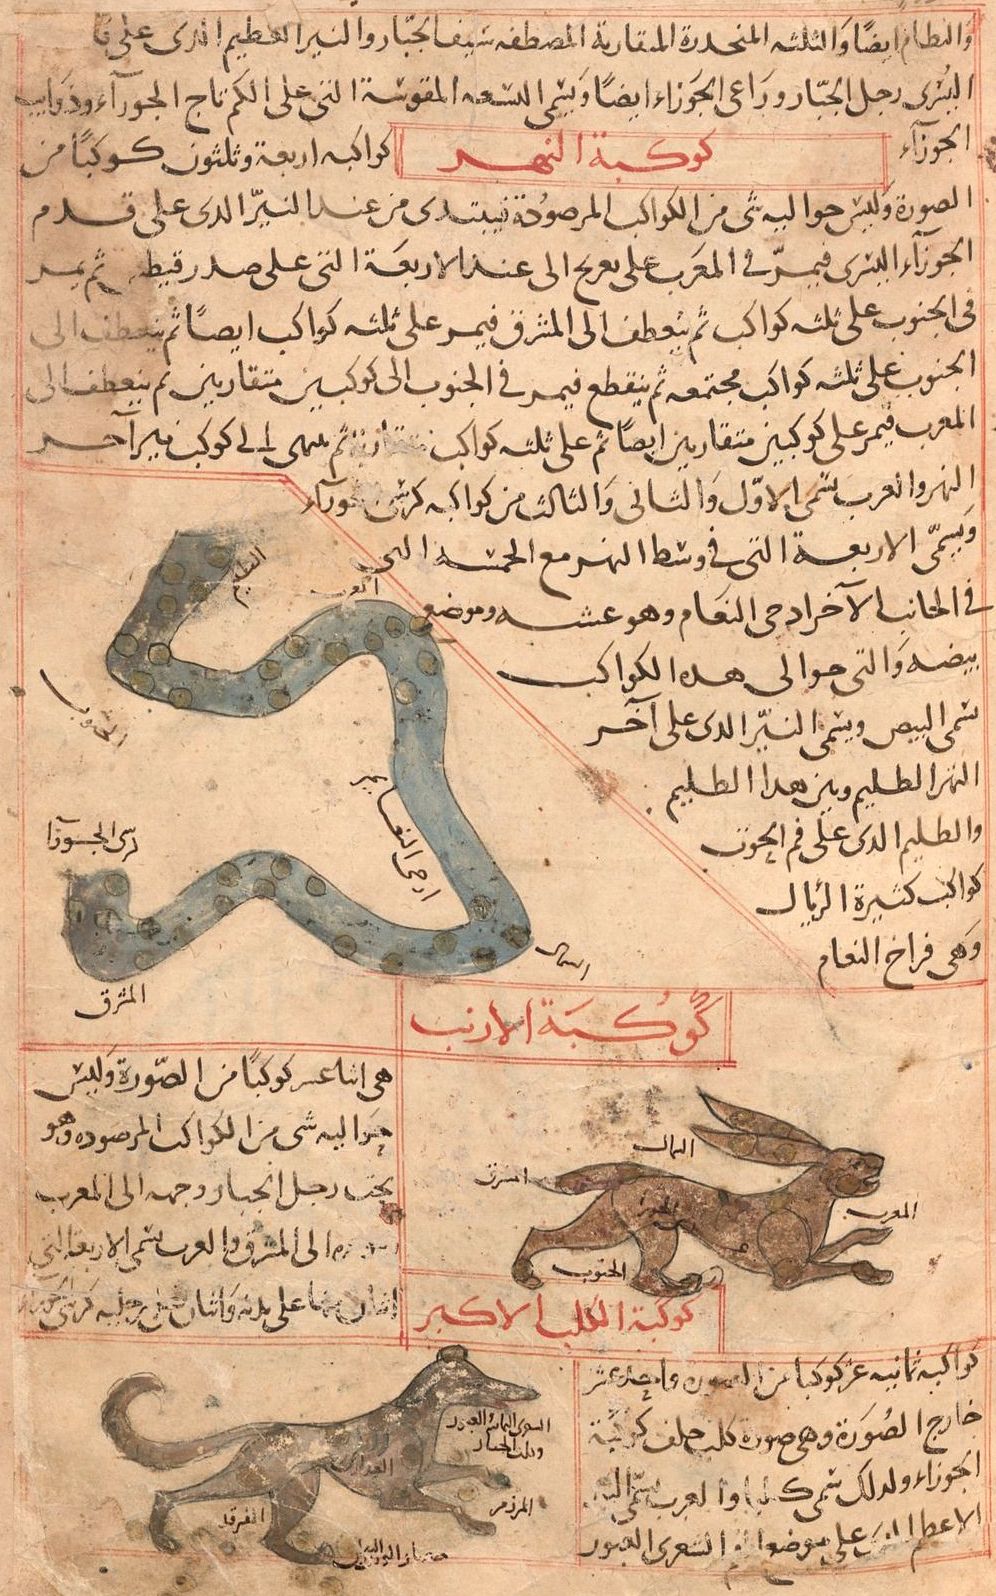 والنطام ايضًا وَالثلثه المنحدرة المتقاربة المصطفه سَيف الجبّار والنير العظيم الذى على
اليُسْرى رجل الجبّار وراعى الجَوزاء ايضًا وَيسَمّى التسعه المقوسَة التى على الكم تاج الجوزآء وذوايب
الجوزآء
كوكبة النهر
كواكبه اربعة وثلثون كوكبًا من
الصورة وَليسَ حواليه شى من الكواكب المرصوُدة فيبتدى من عند النيّر الذى على قدم
الجوزآء اليسرى فيمرّ فى المغرب على تعريج الى عند الاربعَة التى على صدر قيطس ثم يمر
فى الجنوب على ثلثه كواكب ثم ينعطف الى المشرق فيمر على ثلثه كواكب ايضًا ثم ينعطف الى
الجنوب على ثلثه كواكب مجتمعه ثم ينقطع فيمر فى الجنوب الى كوكبين متقاربين ثم ينعطف الى
المغرب فيمر على كوكبين متقاربين ايضًا ثم على ثلثه كواكب متقاربة ثم ينتهى الى كوكب نير آخر
النهر والعرب تسَمّى الاوّل وَالثانى وَالثالث من كواكبه كرسى الجوزآء
وَيسَمّى الاربعة التى فى وسَط النهر مع الخمسَه التى
فى الجانب الآخر ادحى النعَام وهو عشه وموضع
بيضه وَالتى حوالى هذه الكواكب
تسمى البيض ويسَمّى النيّر الذى على آخر
النهر الظليم وبين هذا الظليم
والظليم الذى على فم الحوت
كواكب كثيرة الرئال
وَهى فراخ النعام
الظليم
المغرب
الجنوب
ادحى النعام
كرسى الجوزا
المشرق
الشمال
كوكُبَة الارنب
هى اثنا عشر كوكبًا من الصّورة وَليسَ
حوَاليه شى من الكواكب المرصوده وهو
تحت رجل الجبار وجهه الى المغرب
الى المشرق والعرب تسَمّى الاربعة التى
اثنان منها على بدنه وَاثنان على رجليه كرسى الجوزا
الشمال
المشرق
المغرب
الجنوب
كوكبة الكلب الاكبر
كواكبه ثمانيه عشر كوكبا من الصورة واحد عشر
خارج الصُورَة وهى صورة كلب خلف كوكبَة
الجوزاء ولذلك تسمى كلبا والعرب تسَمّى النير
الاعظم الذى على موضع الفم الشعرى العبور
الشعرى اليمانية العبور
وكلب الجبار
العذارى
المرزم
الفرقد